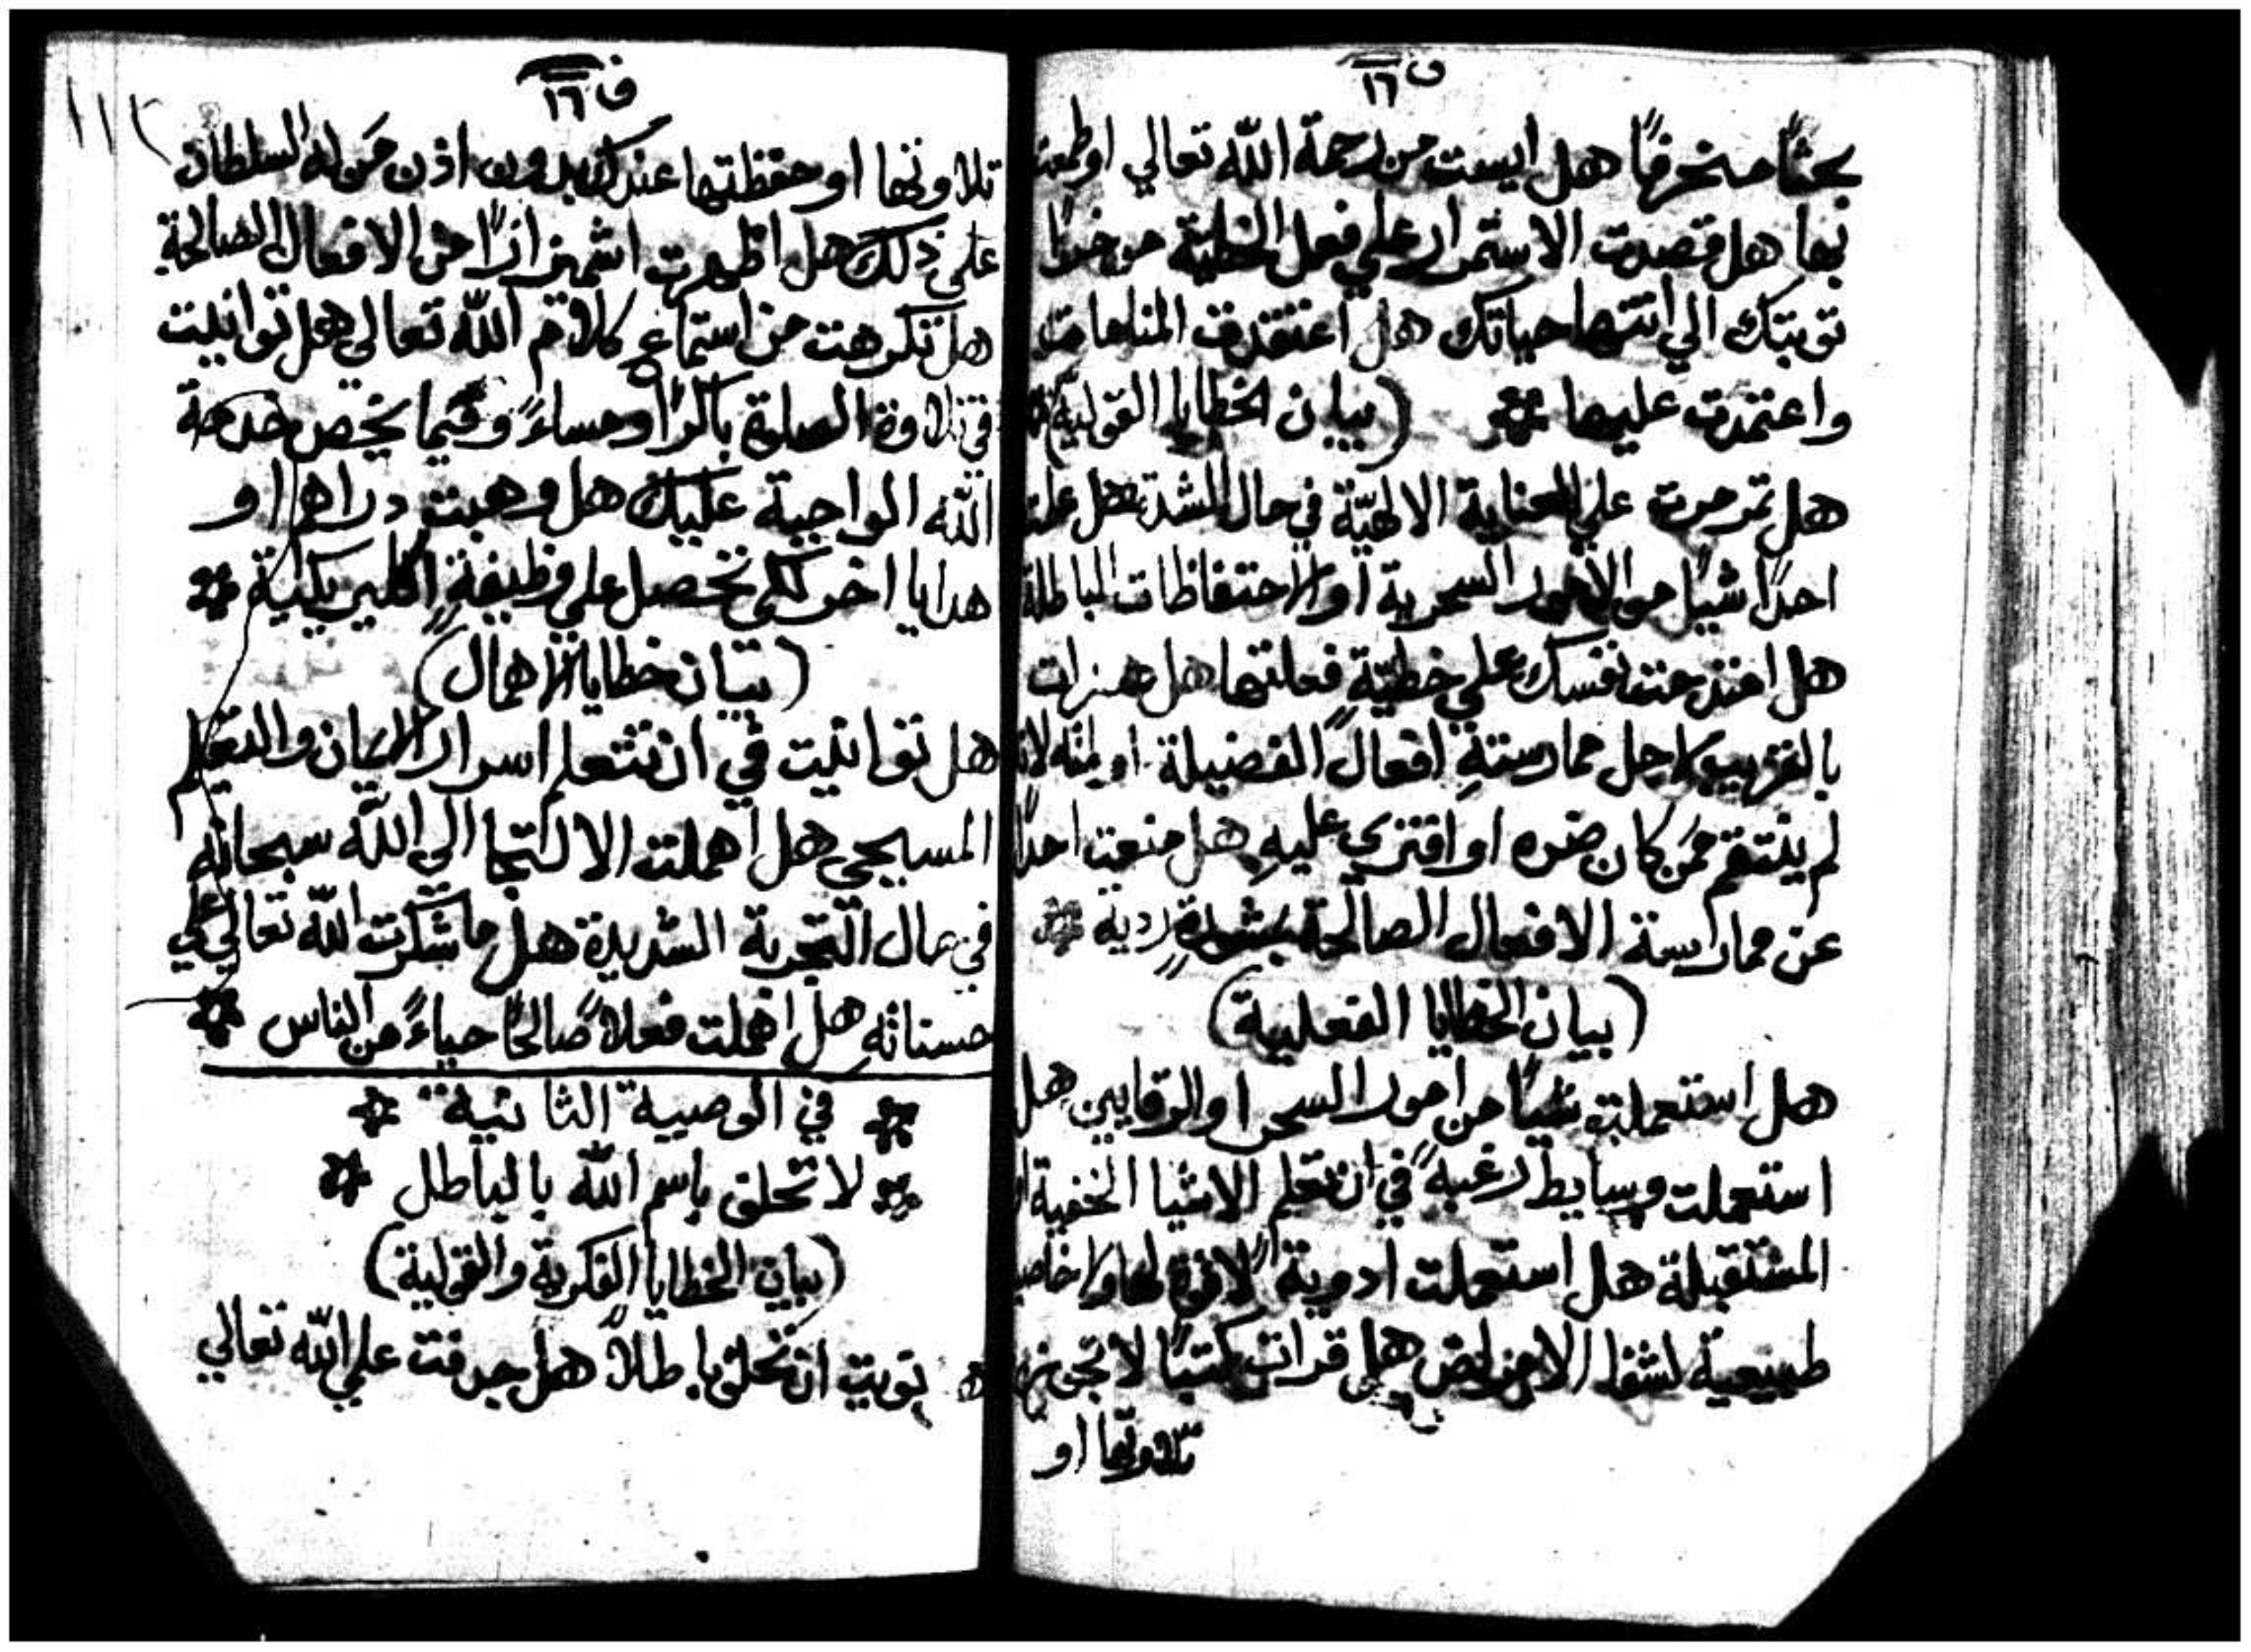 ف ١٦
بحثًا منحرفًا هل ايست من رحمة الله تعالي او طمعت
بها هل قصدت الاستمرار علي فعل الخطية موخرًا
توبتك الي انتها حياتك هل اعتقدت المنامات
واعتمدت عليها (بيان الخطايا القولية)
هل تمرمرت علي العناية الالهيّة في حال الشدة هل علمت
احدًا شيًا من الامور السحرية او الاحتفاظات الباطلة
هل امتدحت نفسك علي خطيّةٍ فعلتها هل هزات
بالقريب لاجل ممارسته افعال الفضيلة او لانه
لم ينتقم ممن كان ضره او افتري عليهِ هل منعت احدًا
عن ممارسة الافعال الصالحة بمشورةٍ ردية
(بيان الخطايا الفعلية)
هل استعملت شيًا من امور السحر او الرقايين هل
استعملت وسايط رغبةً في ان تعلم الاشيا الخفية او
المستقبلة هل استعملت ادوية لا قوة لها ولا خاصة
طبيعية لشفا الامراض هل قرات كتبًا لا تجوز
تلاوتها او
ف ١٦
١١٢
تلاوتها او حفظتها عندك بدون اذن من له السلطان
علي ذلك هل اظهرت اشميزازًا من الافعال الصالحة
هل تكرهت من استماع كلام الله تعالي هل توانيت
في تلاوة الصلوة باكرًا ومساءً وفيما يخص خدمة
الله الواجبة عليك هل وهبت دراهم او
هدايا اخر لكي تحصل علي وظيفةٍ اكليريكية
(بيان خطايا الاهمال)
هل توانيت في ان تتعلم اسرار الايمان والتعليم
المسيحي هل اهملت الالتجا الي الله سبحانه
في حال التجربة الشديدة هل ما شكرت الله تعالي علي
حسناته هل اهملت فعلاً صالحًا حياءً من الناس
في الوصية الثانية
لا تحلف باسم الله بالباطل
(بيان الخطايا الفكرية والقولية)
هل نويت ان تحلف باطلاً هل جدفت علي الله تعالي